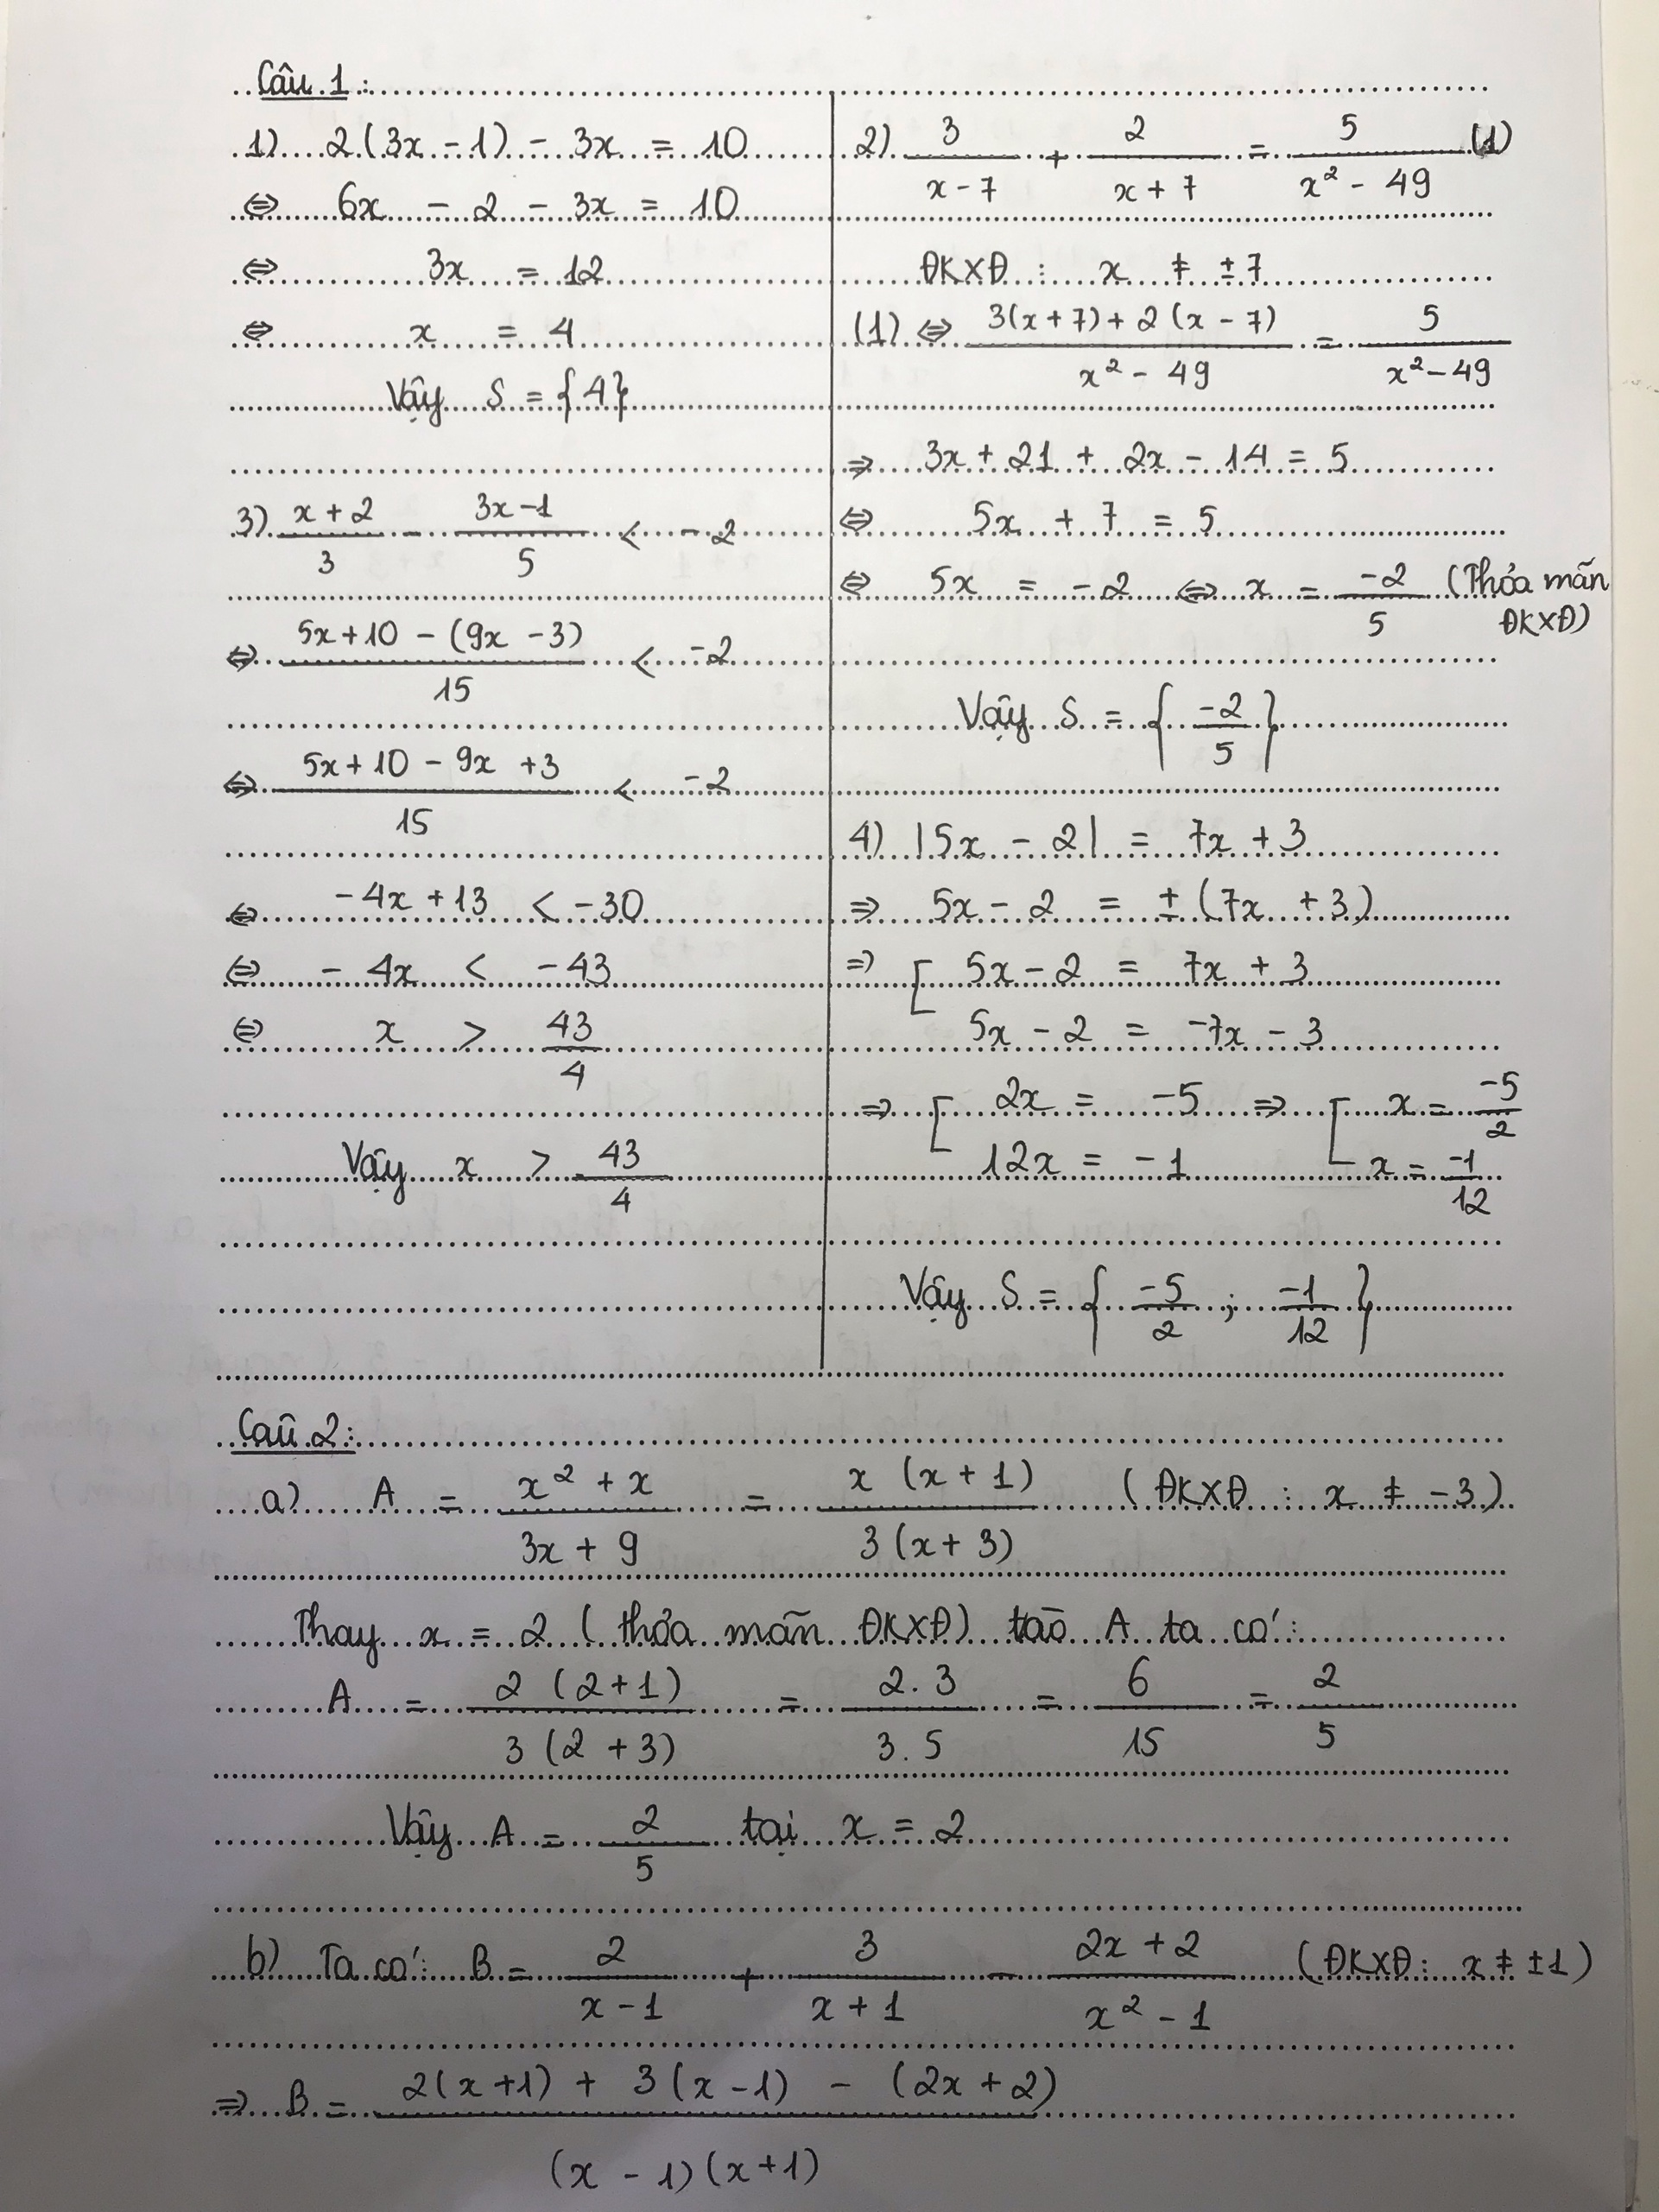 Câu 1 :
1) 2(3x - 1) - 3x = 10
⇔ 6x - 2 - 3x = 10
⇔ 3x = 12
⇔ x = 4
Vậy S = {4}
3) (x + 2)/3 - (3x - 1)/5 < -2
⇔ (5x + 10 - (9x - 3))/15 < -2
⇔ (5x + 10 - 9x + 3)/15 < -2
⇔ -4x + 13 < -30
⇔ - 4x < -43
⇔ x > 43/4
Vậy x > 43/4
2) 3/(x - 7) + 2/(x + 7) = 5/(x² - 49) (1)
ĐKXĐ : x ≠ ±7
(1) ⇔ (3(x + 7) + 2(x - 7))/(x² - 49) = 5/(x² - 49)
⇒ 3x + 21 + 2x - 14 = 5
⇔ 5x + 7 = 5
⇔ 5x = -2 ⇔ x = -2/5 (Thỏa mãn
ĐKXĐ)
Vậy S = { -2/5 }
4) |5x - 2| = 7x + 3
⇒ 5x - 2 = ± (7x + 3)
⇒ [ 5x - 2 = 7x + 3
5x - 2 = -7x - 3
⇒ [ 2x = -5 ⇒ [ x = -5/2
12x = -1 x = -1/12
Vậy S = { -5/2 ; -1/12 }
Caû 2 :
a) A = (x² + x)/(3x + 9) = x (x + 1)/3 (x + 3) (ĐKXĐ : x ≠ -3)
Thay x = 2 (thỏa mãn ĐKXĐ) taò A ta có :
A = 2 (2+1)/3 (2 + 3) = 2.3/3.5 = 6/15 = 2/5
Vậy A = 2/5 tại x = 2
b) Ta có : B = 2/(x - 1) + 3/(x + 1) - (2x + 2)/(x² - 1) (ĐKXĐ : x ≠ ±1)
⇒ B = (2(x + 1) + 3(x - 1) - (2x + 2))/(x - 1)(x + 1)